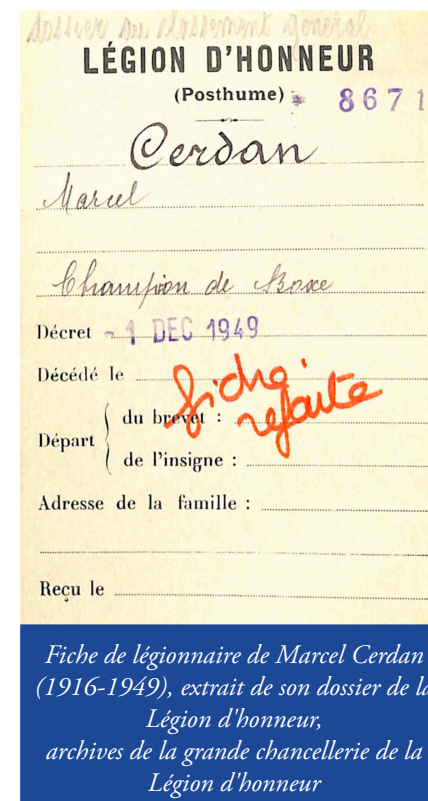 dossier au classement général
LÉGION D'HONNEUR
(Posthume) 8671
Cerdan
Marcel
Champion de Boxe
Décret - 1 DEC 1949
Décédé le
fiche refaite
Départ
du brevet :
de l'insigne :
Adresse de la famille :
Reçu le
Fiche de légionnaire de Marcel Cerdan
(1916-1949), extrait de son dossier de la
Légion d'honneur,
archives de la grande chancellerie de la
Légion d'honneur